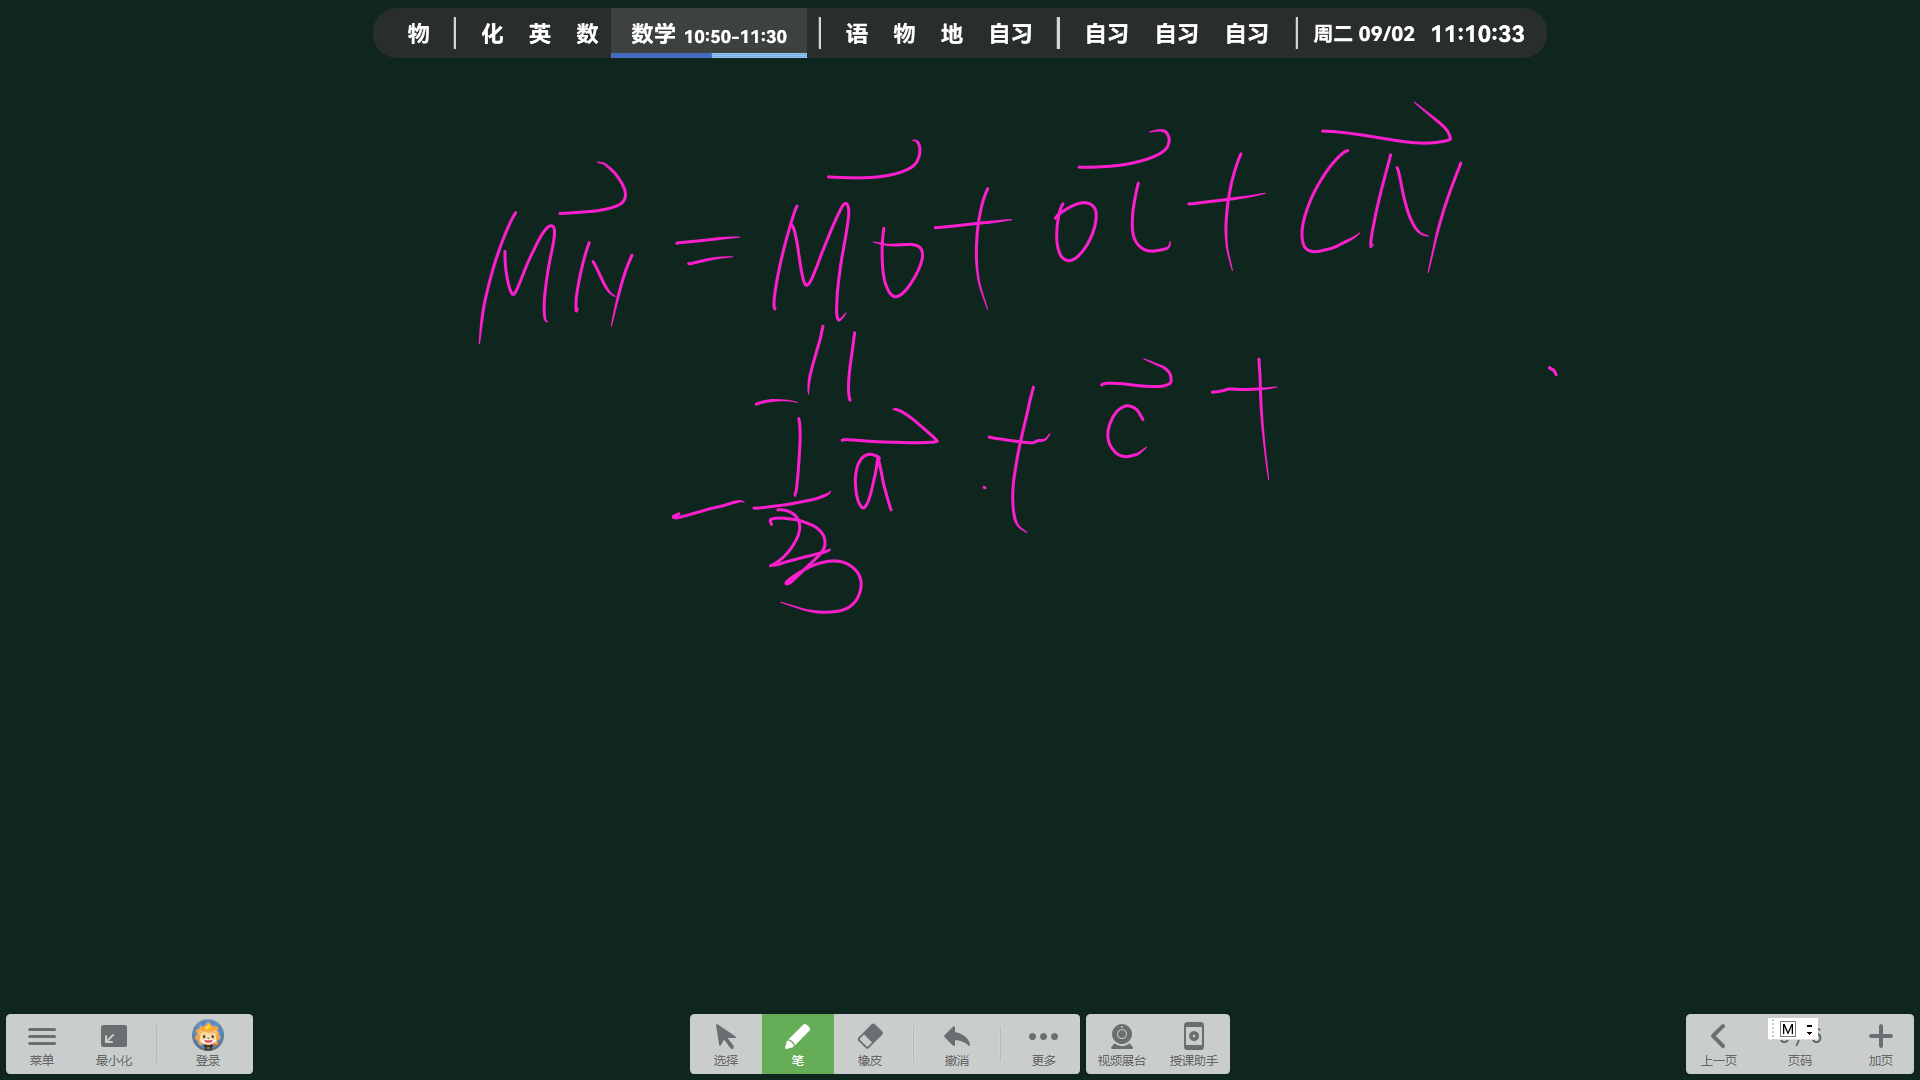 物 | 化 英 数 数学 10:50-11:30 | 语 物 地 自习 | 自习 自习 自习 | 周二 09/02 11:10:33
MN = MO + OC + CN
a + c +
菜单 最小化 登录 选择 笔 橡皮 撤消 更多 视频展台 授课助手 上一页 M 页码 加页